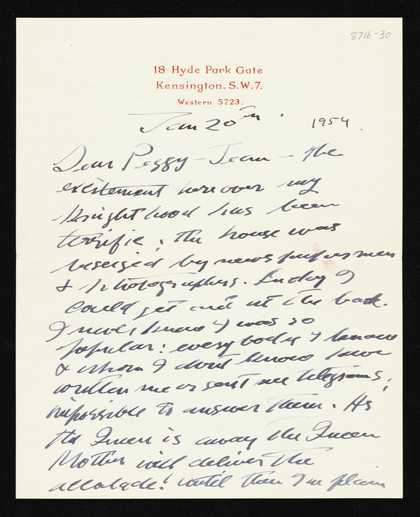 8716-30
18 Hyde Park Gate
Kensington. S.W.7.
Western 5723.
Jan 20th. 1954.
Dear Peggy-Jean - the
excitement here over my
Knighthood has been
terrific; the house was
beseiged by newspapermen
& photographers. Lucky I
could get out at the back.
I never knew I was so
popular: everybody I know
& whom I don't know have
written me or sent me telegrams,
impossible to answer them. As
the Queen is away the Queen
Mother will deliver the
accolade! until then I'm plain